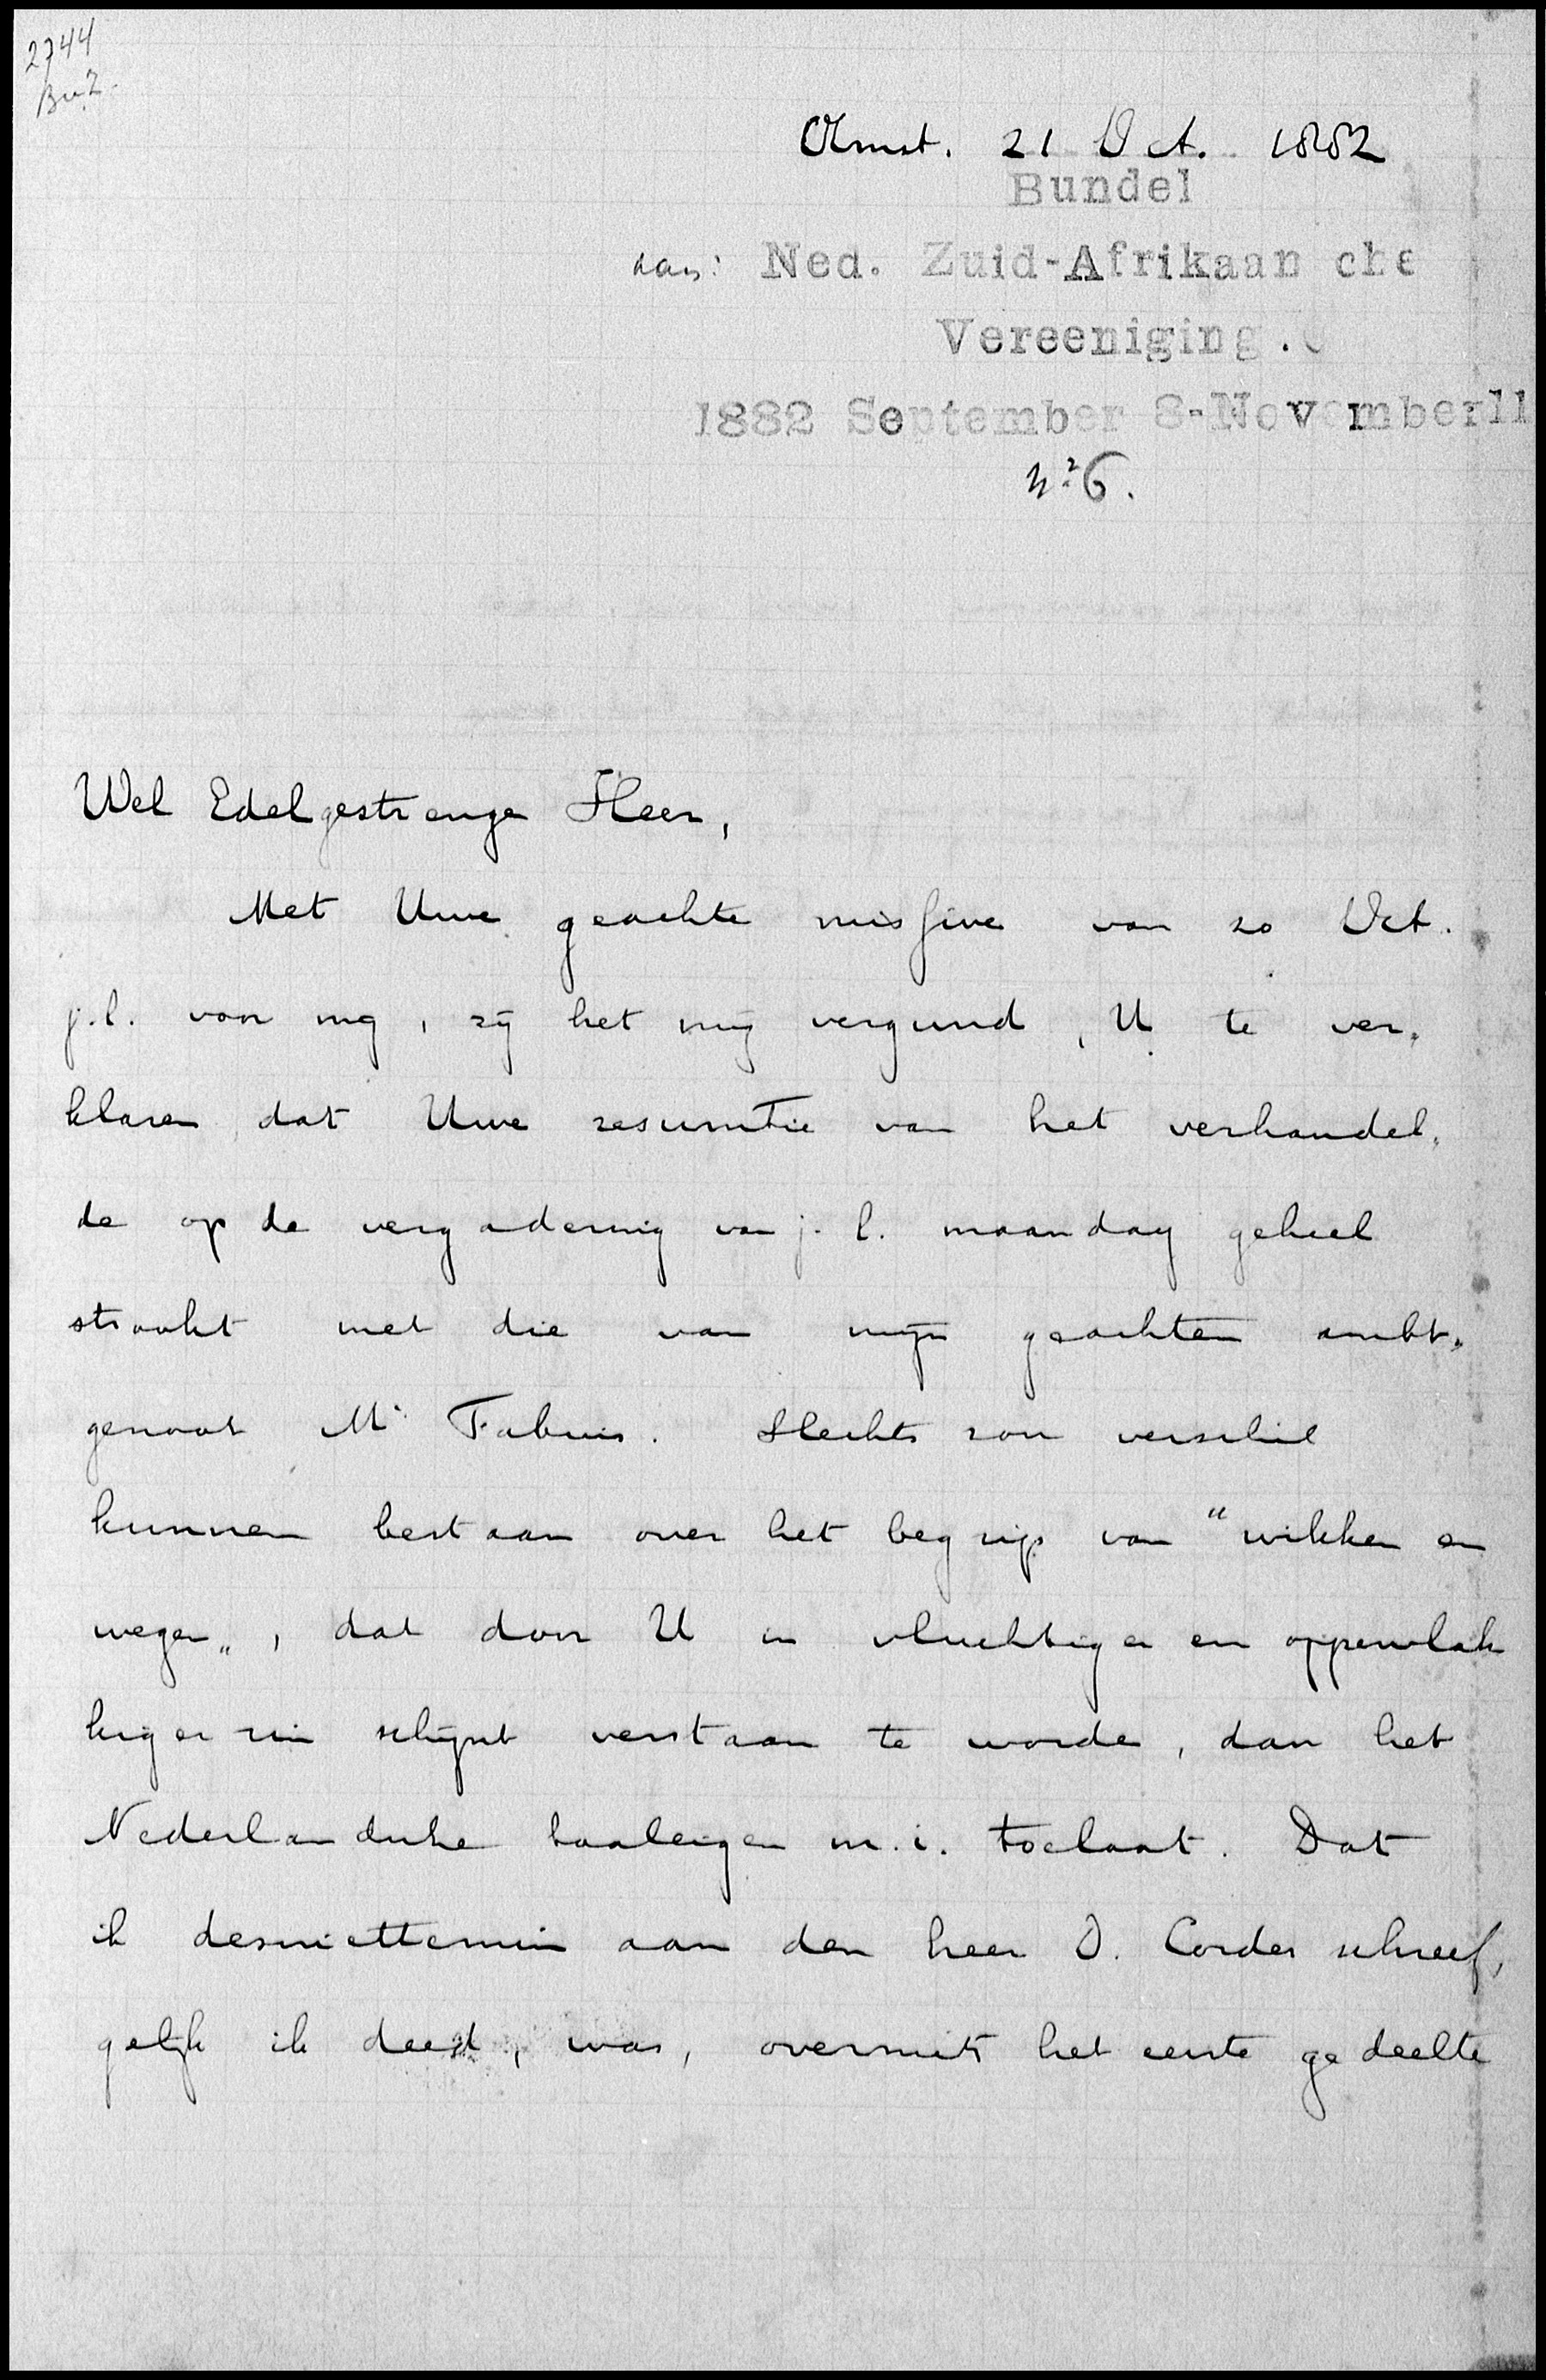 2744
Bu2.
Amst. 21 Oct. 1882
Bundel
aan: Ned. Zuid-Afrikaan che
Vereeniging.
1882 September 8-Nov mber11
No 6.
Wel Edelgestrenge Heer,
Met Uwe geachte missive van 20 Oct.
j.l. voor mij, zij het mij vergund, U te ver„
klaren dat Uwe resumtie van het verhandel„
de op de vergadering van j.l. maandag geheel
strookt met die van mijn geachten ambt„
genoot Mr Fabius. Slechts zou verschil
kunnen bestaan over het begrip van “wikken en
wegen„, dat door U in vluchtiger en oppervlak
kiger zin schijnt verstaan te worden, dan het
Nederlandsche taaleigen m.i. toelaat. Dat
ik desniettemin aan den heer D. Cordes schreef,
gelijk ik deed, was, overmits het eerste gedeelte